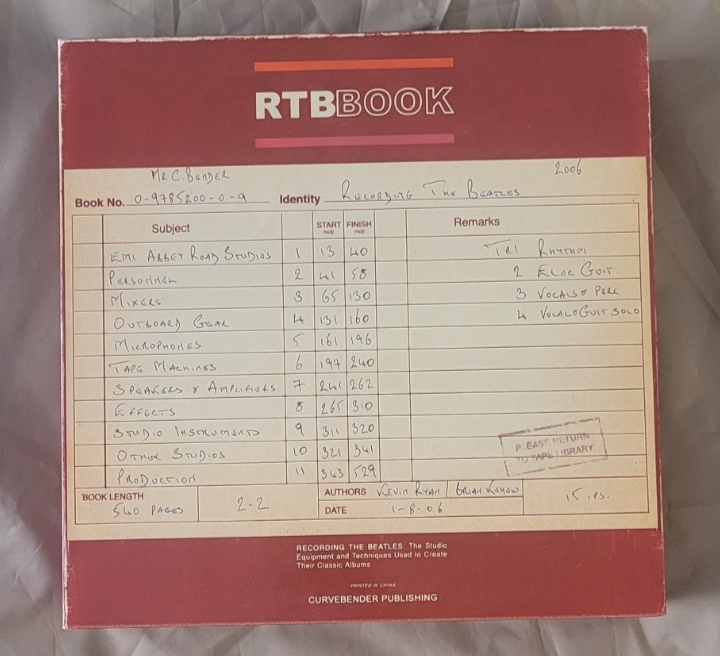 RTBBOOK
MR C. BENDER 2006
Book No. 0-9785200-0-9 Identity RECORDING THE BEATLES
Subject START PAGE FINISH PAGE Remarks
EMI ABBEY ROAD STUDIOS 1 13 40 TR1 RHYTHM
PERSONNEL 2 41 58 2 ELEC GUIT
MIXERS 3 65 130 3 VOCALS & PERC
OUTBOARD GEAR 4 131 160 4 VOCAL & GUIT SOLO
MICROPHONES 5 161 196
TAPE MACHINES 6 197 240
SPEAKERS & AMPLIFIERS 7 241 262
EFFECTS 8 265 310
STUDIO INSTRUMENTS 9 311 320
OTHER STUDIOS 10 321 341
PRODUCTION 11 343 529
PLEASE RETURN
TO TAPE LIBRARY
BOOK LENGTH
540 PAGES 2-2 AUTHORS KEVIN RYAN / BRIAN KEHEW 15 I.P.S.
DATE 1-8-06
RECORDING THE BEATLES: The Studio
Equipment and Techniques Used to Create
Their Classic Albums
PRINTED IN CHINA
CURVEBENDER PUBLISHING